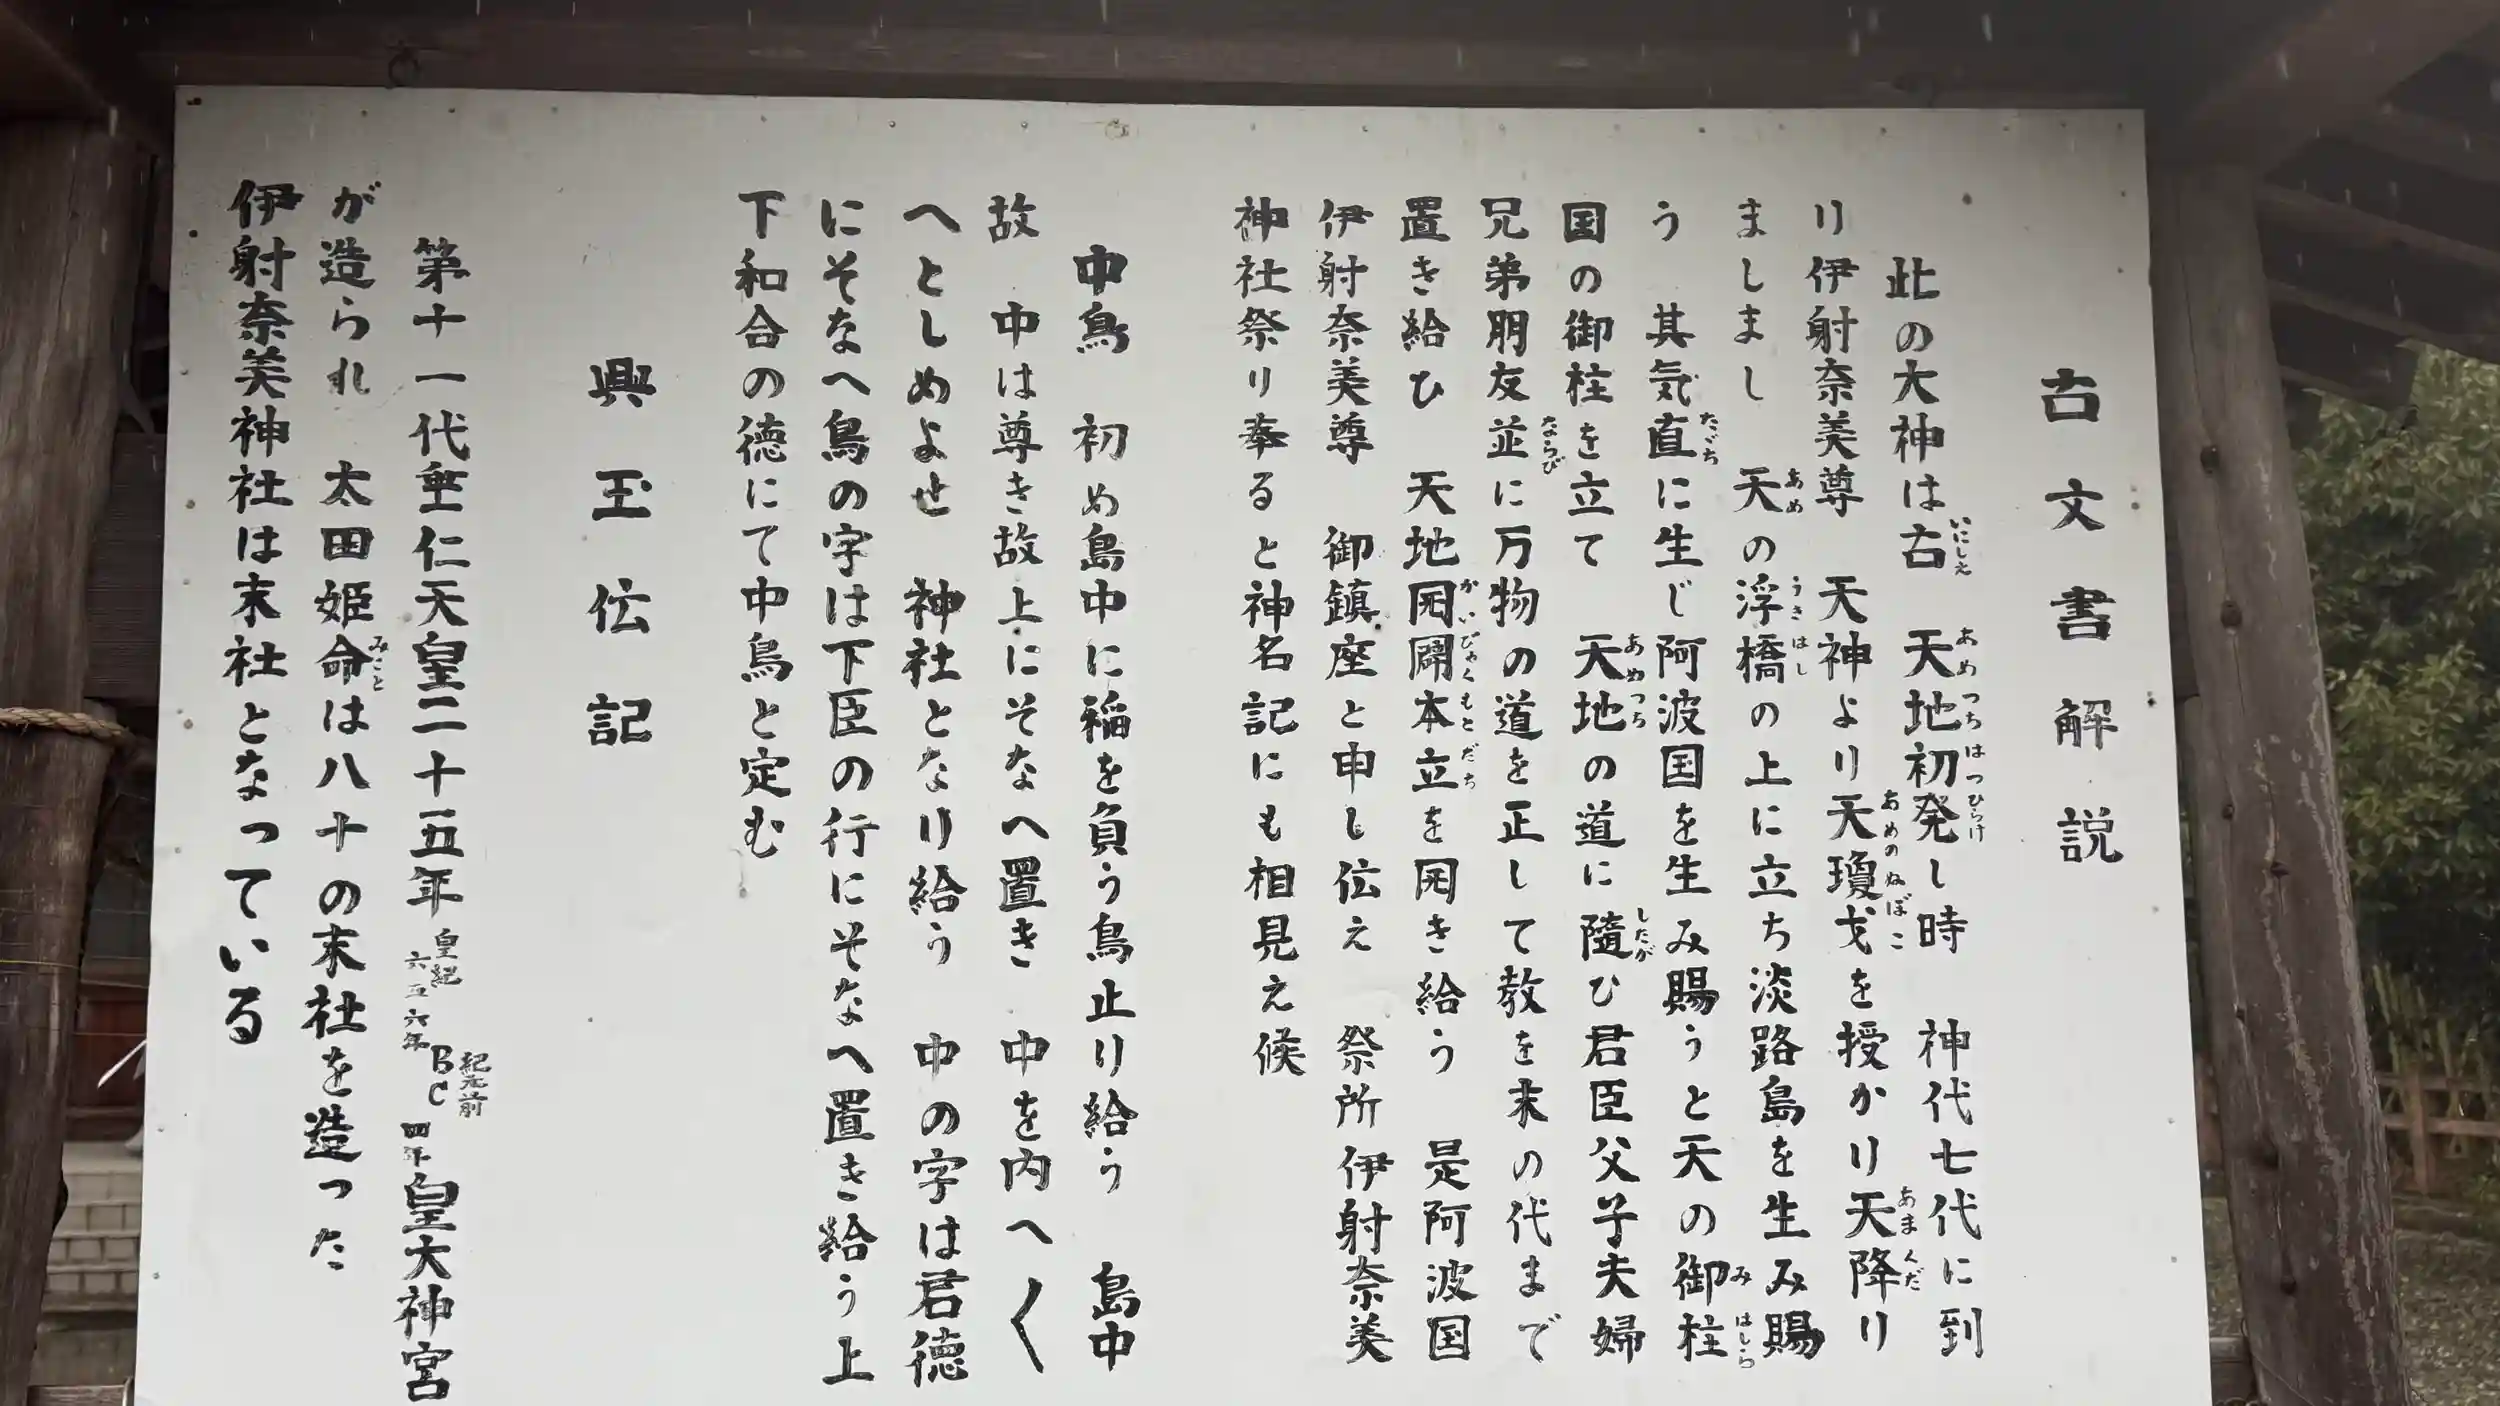 古文書解説
此の大神は古 天地初発し時 神代七代に到
り伊射奈美尊 天神より天瓊戈を授かり天降り
ましまし 天の浮橋の上に立ち淡路島を生み賜
う 其気直に生じ阿波国を生み賜うと天の御柱
国の御柱を立て 天地の道に隨ひ君臣父子夫婦
兄弟朋友並に万物の道を正して教を末の代まで
置き給ひ 天地開闢本立を開き給う 是阿波国
伊射奈美尊 御鎮座と申し伝え 祭所伊射奈美
神社祭り奉ると神名記にも相見え候
中鳥 初め島中に稲を負う鳥止り給う 島中
故 中は尊き故上にそなへ置き 中を内へ〱
へとしめよせ 神社となり給う 中の字は君徳
にそなへ鳥の字は下臣の行にそなへ置き給う上
下和合の徳にて中鳥と定む
興玉伝記
第十一代垂仁天皇二十五年 皇紀六五六年 BC紀元前四年 皇大神宮
が造られ 太田姫命は八十の末社を造った
伊射奈美神社は末社となっている
いにしえ
あめつちはつひらけ
あめのぬぼこ
あまくだ
あめ
うきはし
たゞち
みはしら
あめつち
したが
ならび
かいびゃくもとだち
みこと